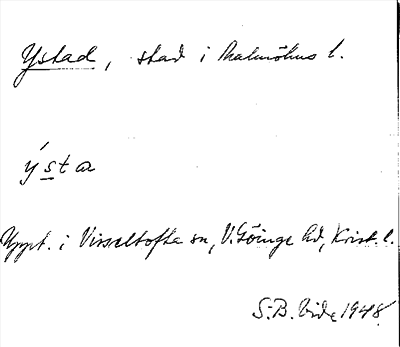 Ystad, stad i Malmöhus l.
ýsta
Uppt. i Visseltofta sn, V. Göinge hd, Krist. l.
S. B. Vide 1948